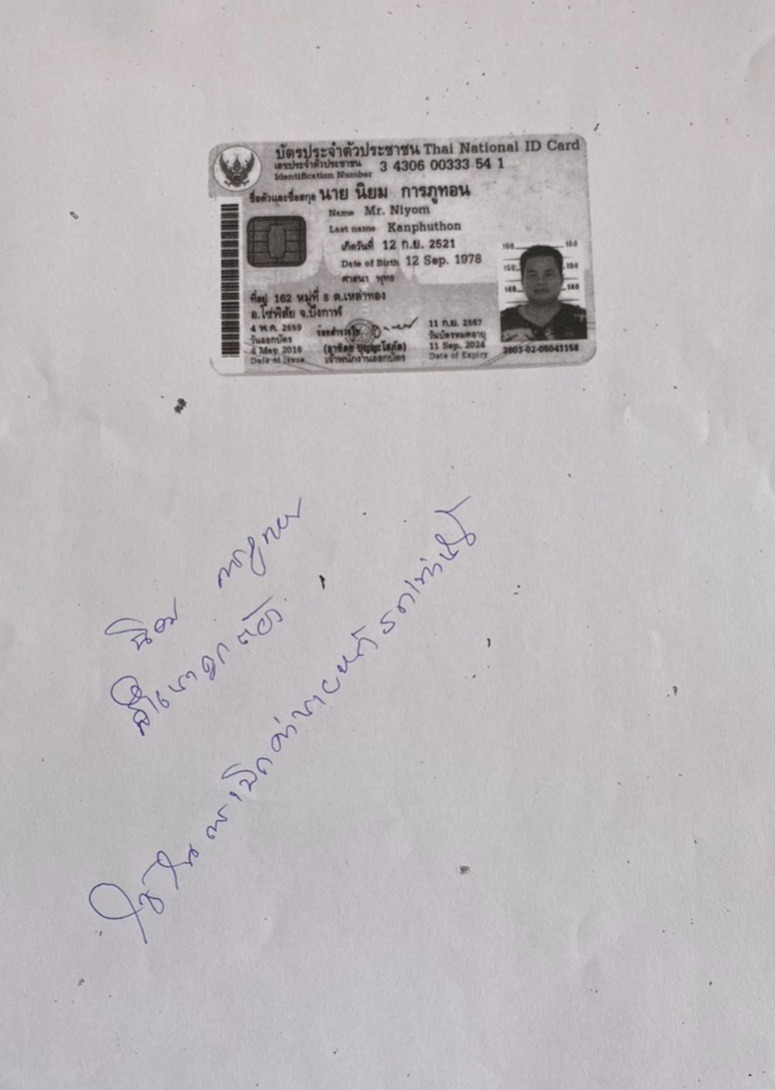 บัตรประจำตัวประชาชน Thai National ID Card
เลขประจำตัวประชาชน
Identification Number 3 4306 00333 54 1
ชื่อตัวและชื่อสกุล นาย นิยม การภูทอน
Name Mr. Niyom
Last name Kanphuthon
เกิดวันที่ 12 ก.ย. 2521
Date of Birth 12 Sep. 1978
ศาสนา พุทธ
ที่อยู่ 162 หมู่ที่ 8 ต.เหล่าทอง
อ.โซ่พิสัย จ.บึงกาฬ
4 พ.ค. 2559
วันออกบัตร
4 May 2016
Date of Issue
เจ้าพนักงานออกบัตร
11 ก.ย. 2567
วันบัตรหมดอายุ
11 Sep. 2024
Date of Expiry
160 160
150 150
140 140
3803-02-05041158
นิยม
สำเนาถูกต้อง
ใช้ในการเบิกค่า เท่านั้น